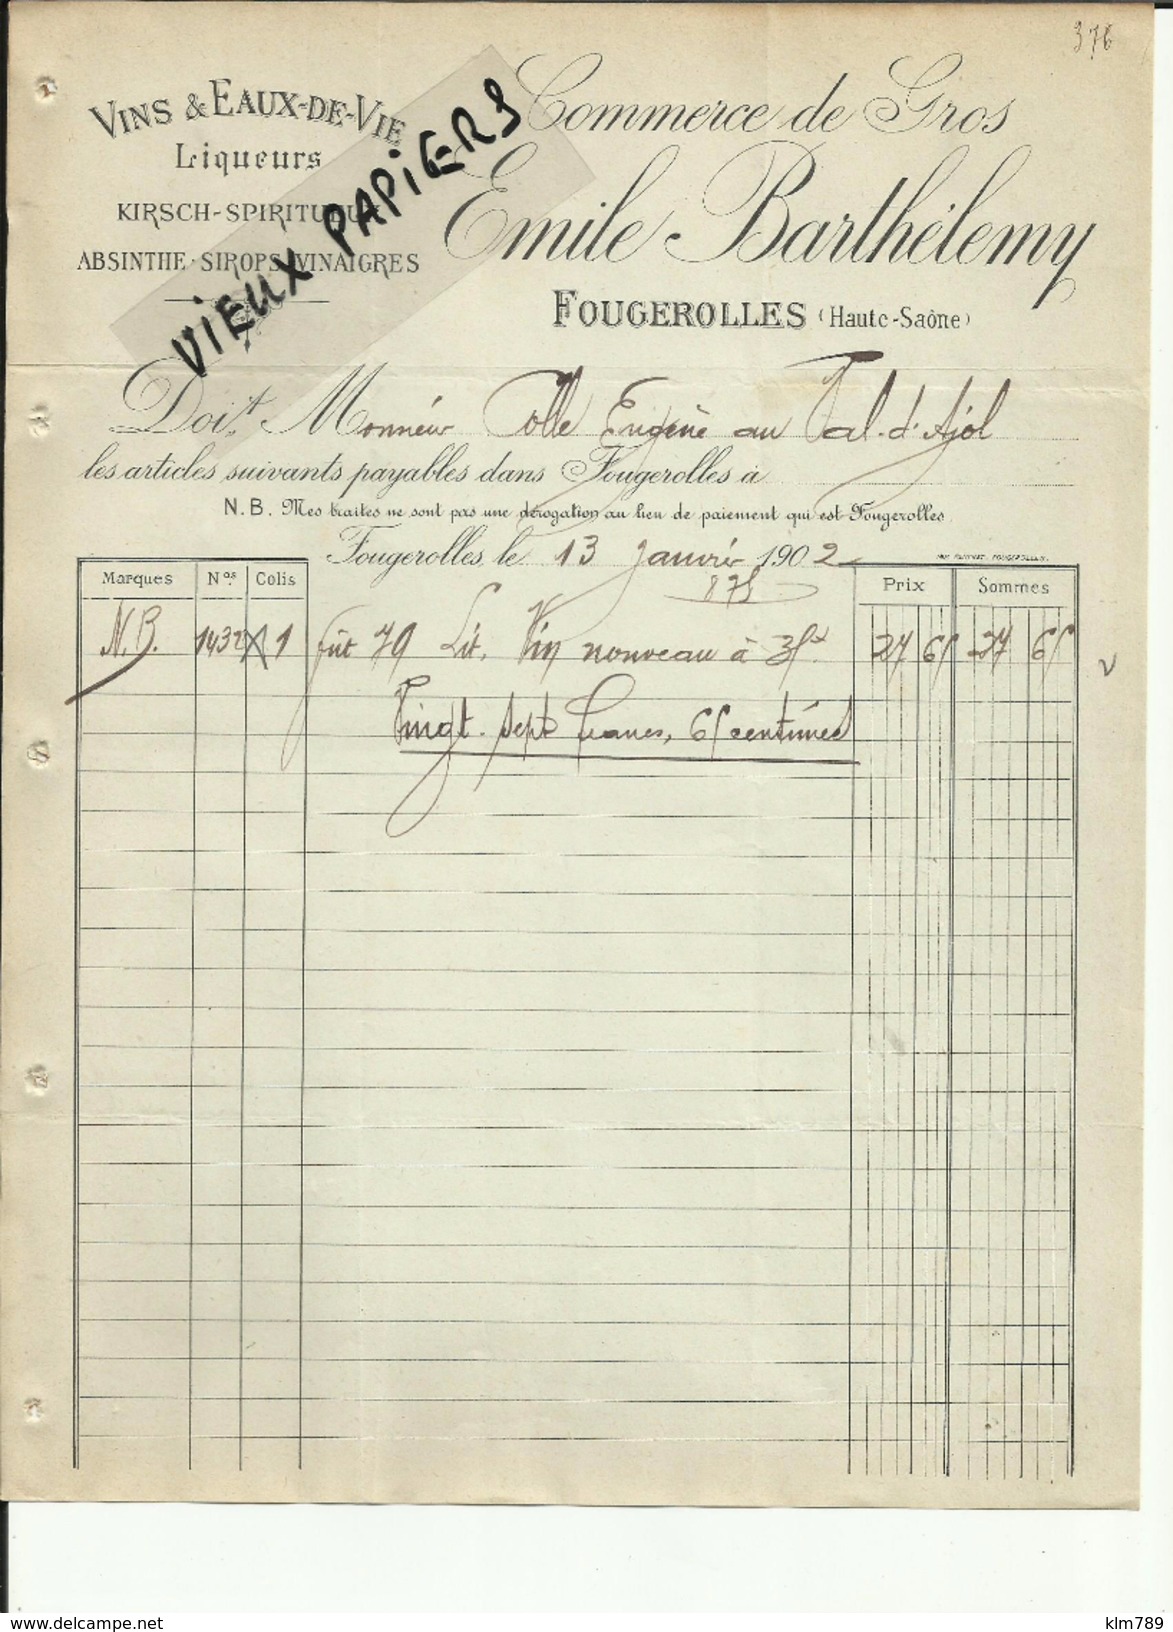 376
VINS & EAUX-DE-VIE
Liqueurs
KIRSCH-SPIRITUEUX
ABSINTHE-SIROPS-VINAIGRES
VIEUX PAPIERS
Commerce de Gros
Emile Barthélemy
FOUGEROLLES (Haute-Saône)
Doit Monsieur Colle Eugène au Val-d'Ajol
les articles suivants payables dans Fougerolles à
N.B. Mes traites ne sont pas une dérogation au lieu de paiement qui est Fougerolles
Fougerolles, le 13 Janvier 1902
Marques Nos Colis Prix Sommes
N.B. 1432 1 fût 79 Lit. Vin nouveau à 35 27 65 27 65
Vingt-sept francs, 65 centimes
klm789